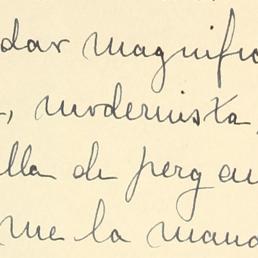 dar magnific
, modernista,
lla de perg au
me la mand